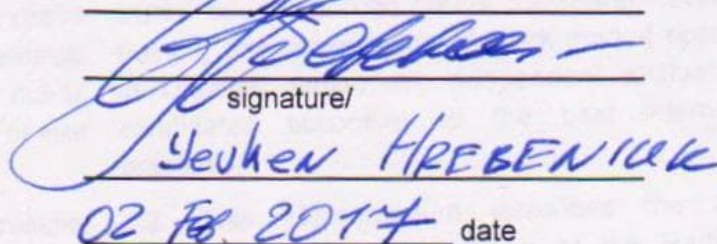 signature/
Yeuhen HREBENIUK
02 Feb, 2017 date